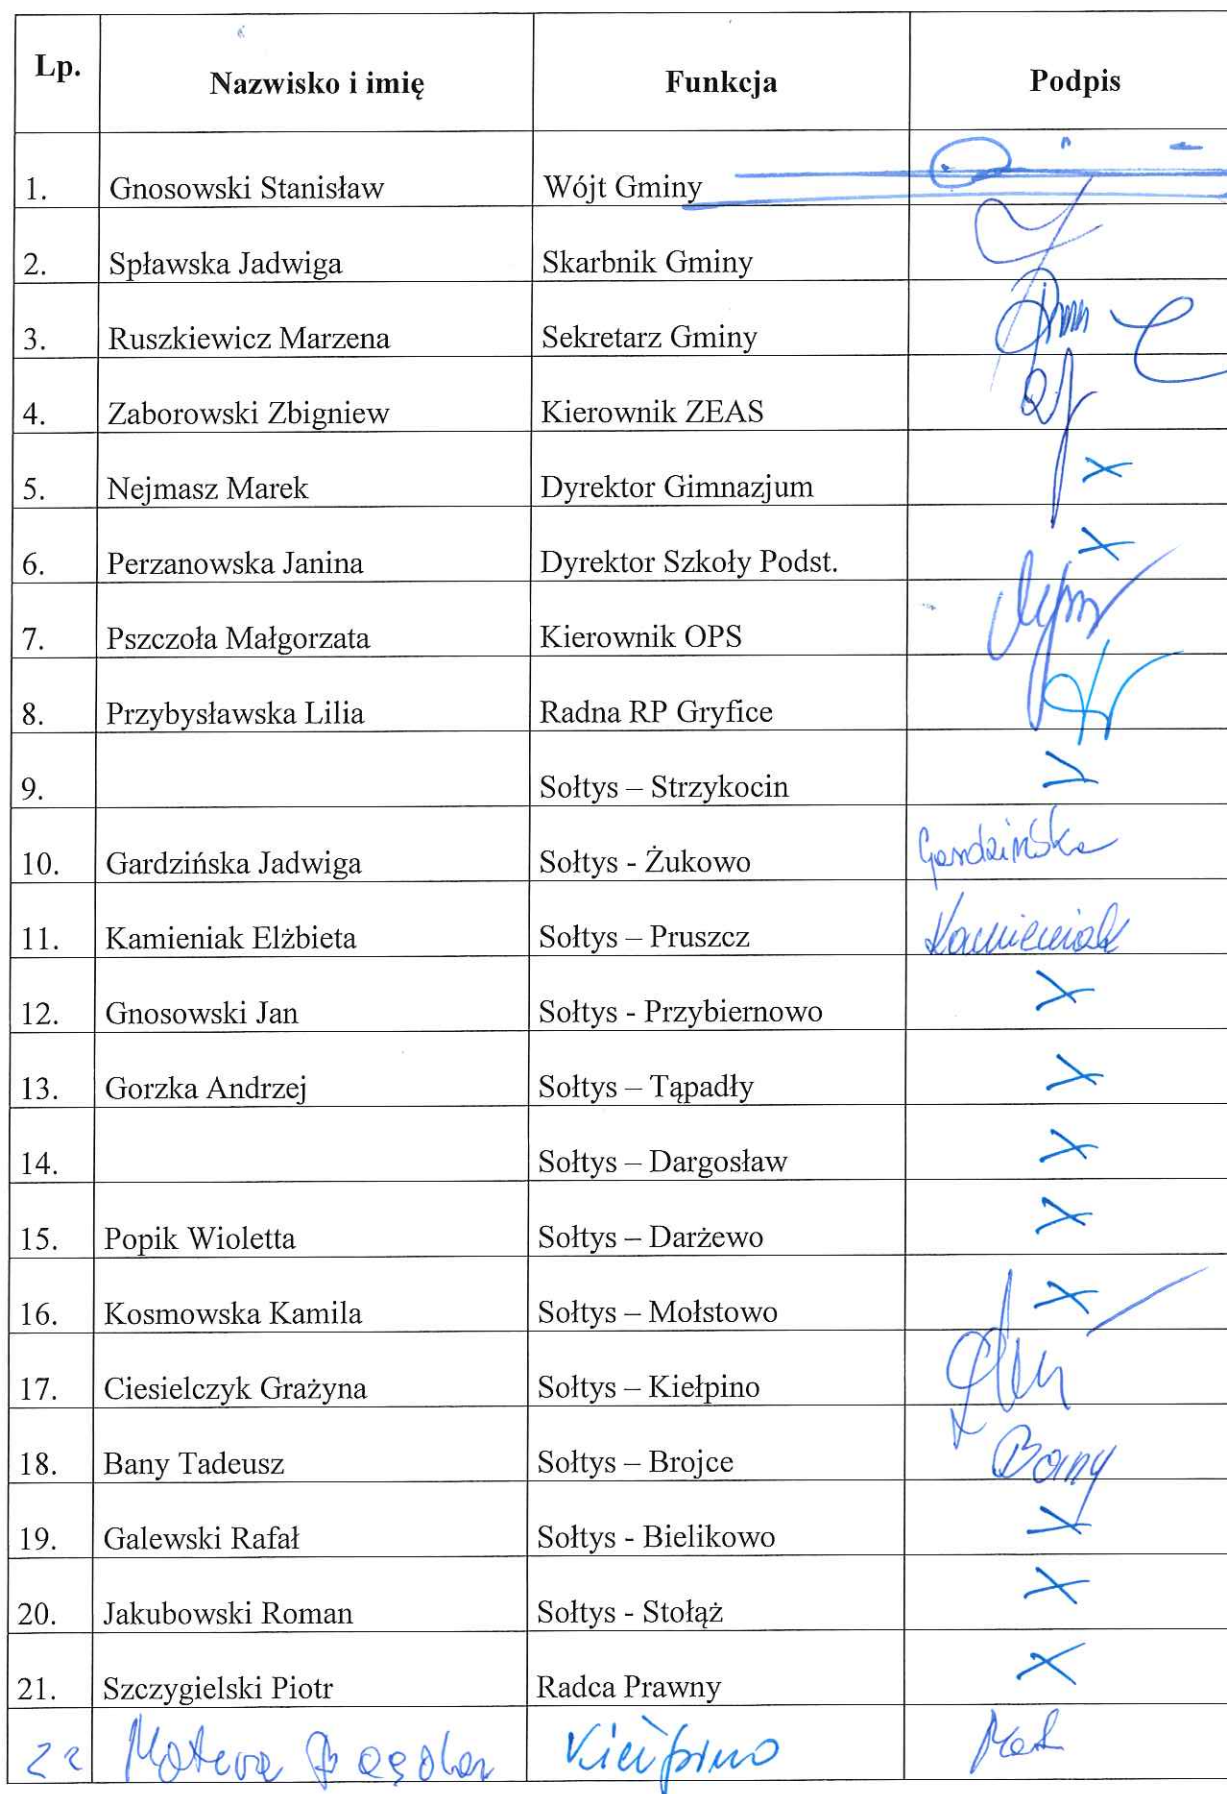 Lp. Nazwisko i imię Funkcja Podpis
1. Gnosowski Stanisław Wójt Gminy
2. Spławska Jadwiga Skarbnik Gminy
3. Ruszkiewicz Marzena Sekretarz Gminy
4. Zaborowski Zbigniew Kierownik ZEAS
5. Nejmasz Marek Dyrektor Gimnazjum X
6. Perzanowska Janina Dyrektor Szkoły Podst. X
7. Pszczoła Małgorzata Kierownik OPS
8. Przybysławska Lilia Radna RP Gryfice
9. Sołtys – Strzykocin X
10. Gardzińska Jadwiga Sołtys - Żukowo Gardzińska
11. Kamieniak Elżbieta Sołtys – Pruszcz Kamieniak
12. Gnosowski Jan Sołtys - Przybiernowo X
13. Gorzka Andrzej Sołtys – Tąpadły X
14. Sołtys – Dargosław X
15. Popik Wioletta Sołtys – Darżewo X
16. Kosmowska Kamila Sołtys – Mołstowo X
17. Ciesielczyk Grażyna Sołtys – Kiełpino
18. Bany Tadeusz Sołtys – Brojce Bany
19. Galewski Rafał Sołtys - Bielikowo X
20. Jakubowski Roman Sołtys - Stołąż X
21. Szczygielski Piotr Radca Prawny X
22 Matera Kiełpino Mat